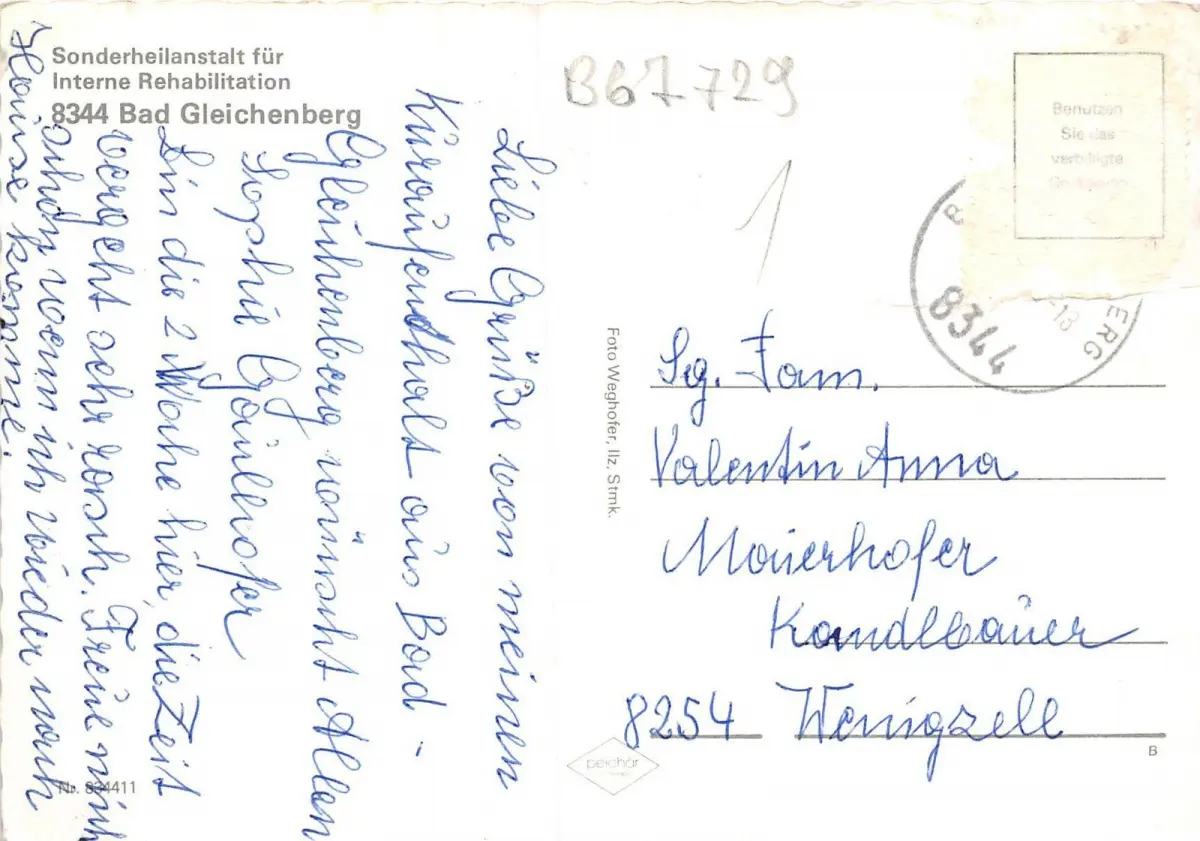 Sonderheilanstalt für
Interne Rehabilitation
8344 Bad Gleichenberg
Liebe Grüße von meinen
Kuraufendhalt aus Bad -
Gleichenberg wünscht Allen
Sophie Gaulhofer
Bin die 2 Woche hier, die Zeit
vergeht sehr rasch. Freue mich
schon wenn ich wieder nach
Hause komme.
Nr. 834411
B67729
1
Benutzen
Sie das
verbilligte
8344
ERG
Foto Weghofer, Ilz, Stmk.
Sg. Fam.
Valentin Anna
Maierhofer
Kandlbauer
8254 Wenigzell
peichär
B